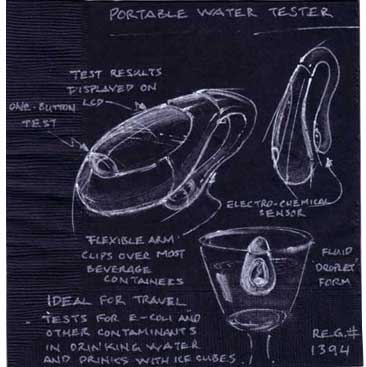 PORTABLE WATER TESTER
TEST RESULTS
DISPLAYED ON
LCD
ONE-BUTTON
TEST
ELECTRO-CHEMICAL
SENSOR
FLEXIBLE ARM
CLIPS OVER MOST
BEVERAGE
CONTAINERS
FLUID
'DROPLET'
FORM
IDEAL FOR TRAVEL
TESTS FOR E-COLI AND
OTHER CONTAMINANTS
IN DRINKING WATER
AND DRINKS WITH ICE CUBES.
RE.G.#
1394